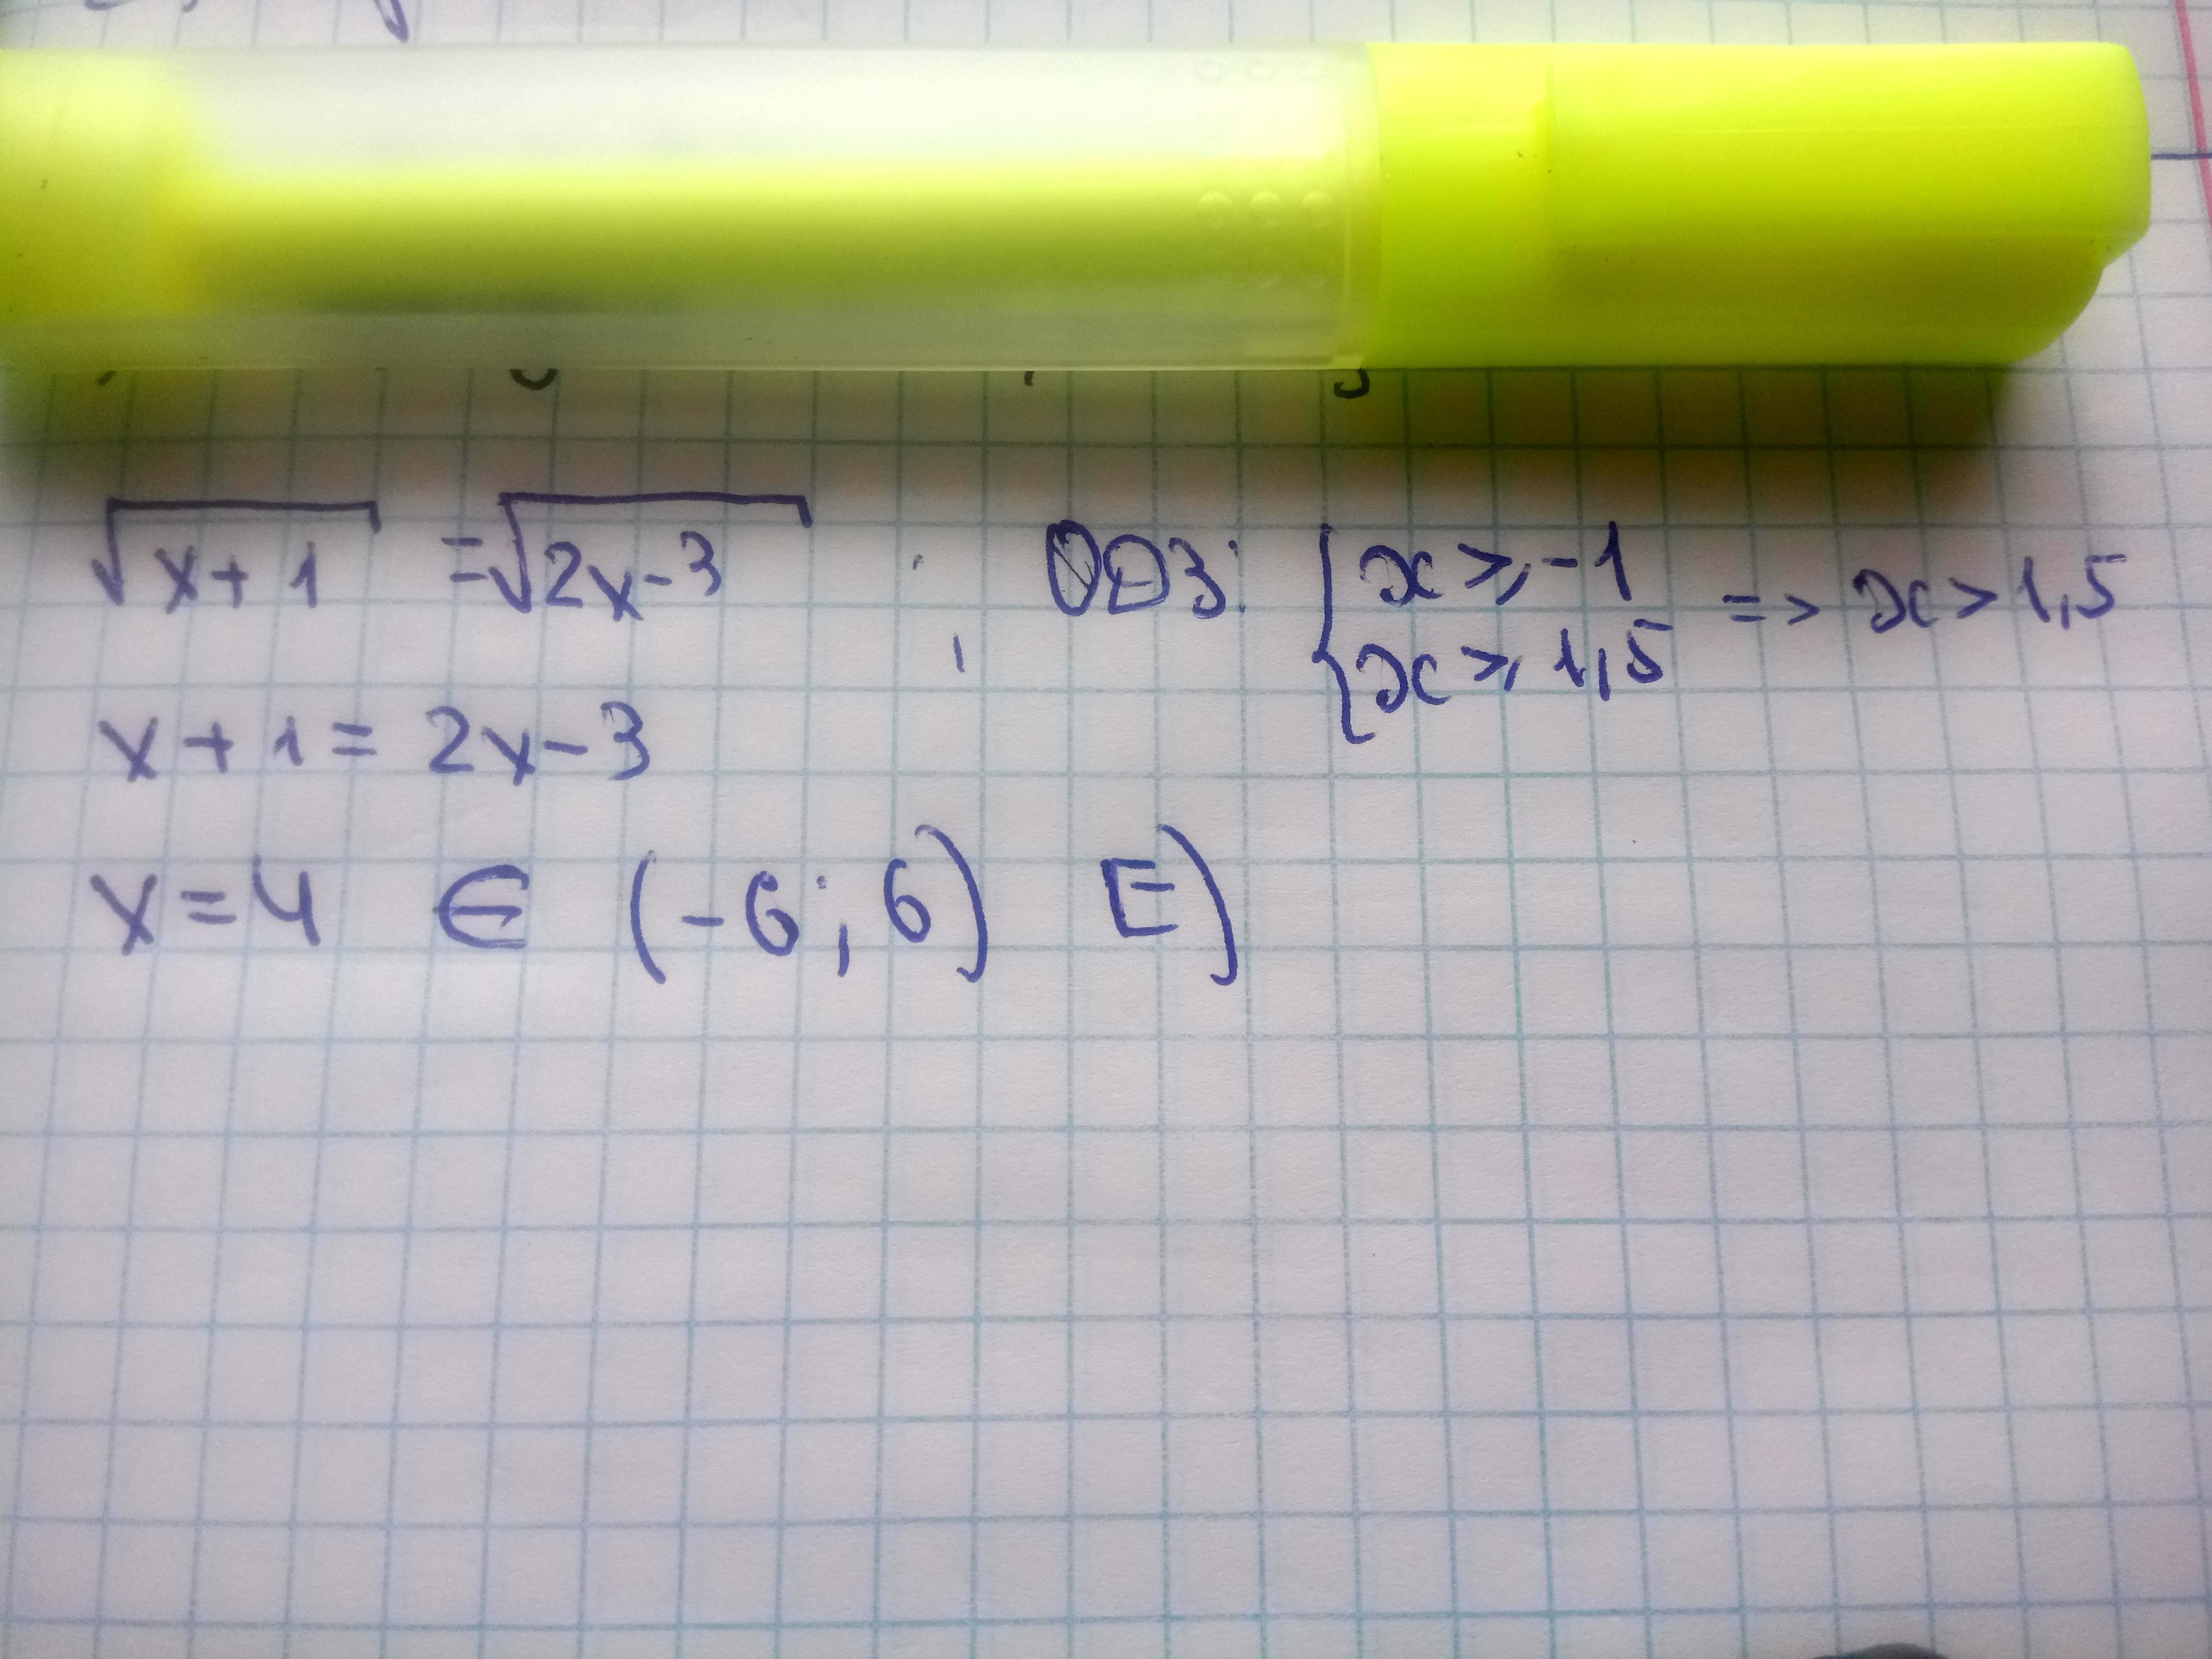 √x+1 = √2x-3 ; ОДЗ: { x ⩾ -1
x ⩾ 1,5 => x > 1,5
x + 1 = 2x - 3
x = 4 ∈ (-6; 6) E)